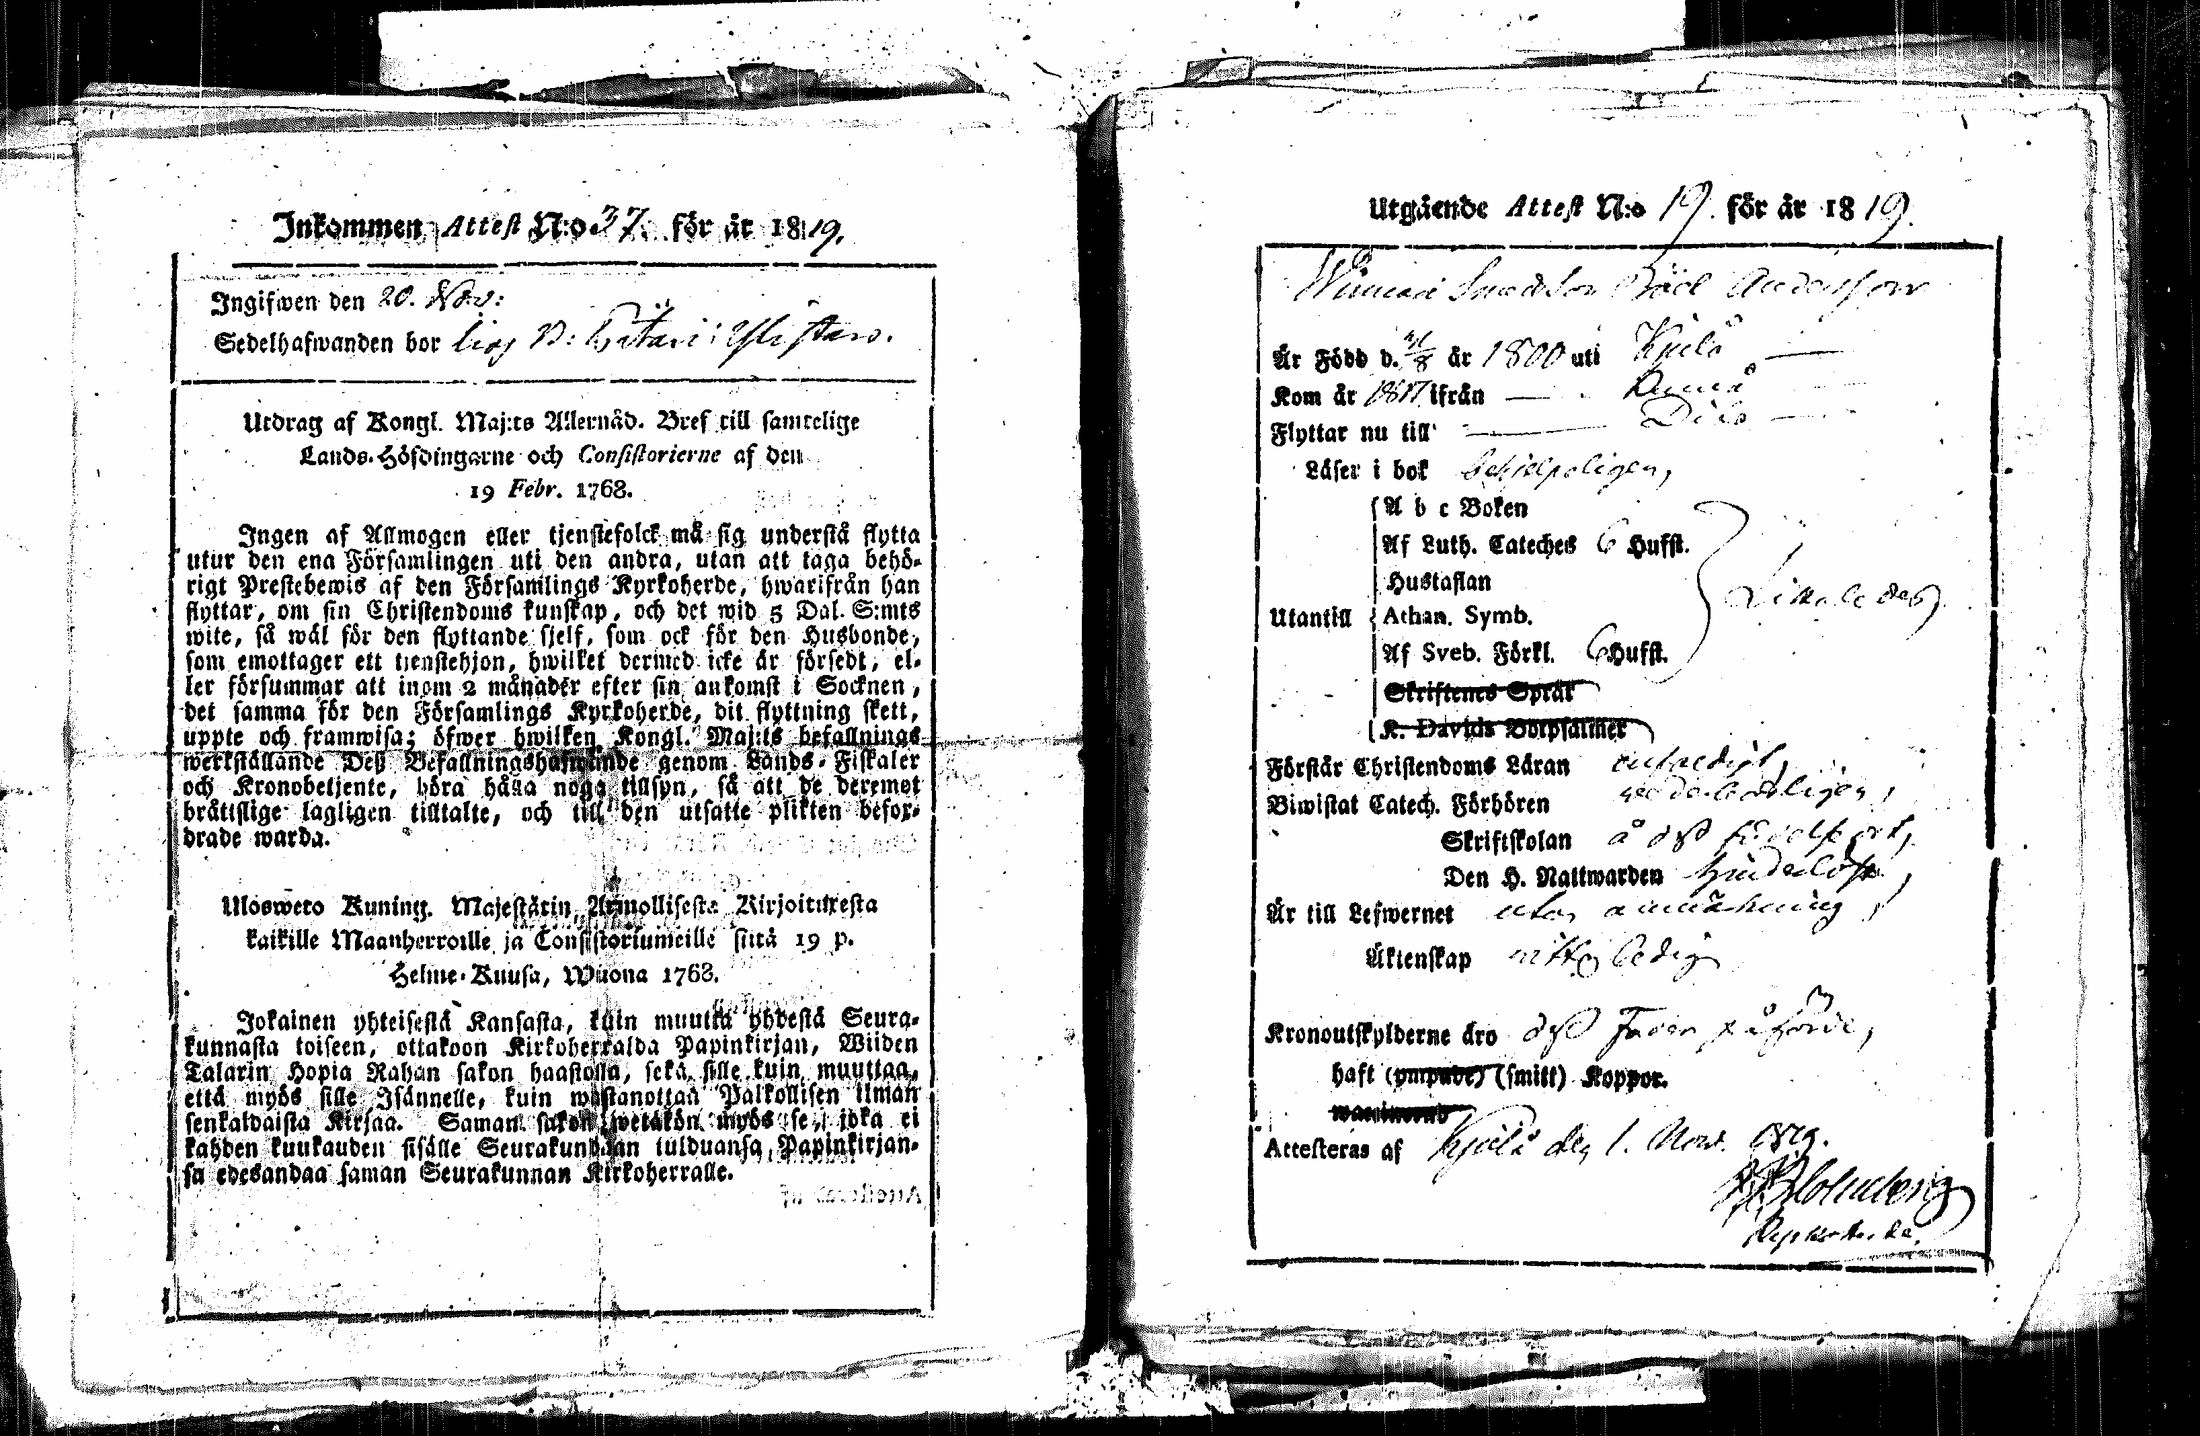 Inkommen Attest N:o 37. för år 1819.
Ingifwen den 20. Nov:
Sedelhafwanden bor hos
Utdrag af Kongl. Maj:ts Allernåd. Bref till samtelige
Lands-Höfdingarne och Consistorierne af den
19 Febr. 1768.
Ingen af Allmogen eller tjenstefolck må sig understå flytta
utur den ena Församlingen uti den andra, utan att taga behö-
rigt Prestebewis af den Församlings Kyrkoherde, hwarifrån han
flyttar, om sin Christendoms kunskap, och det wid 5 Dal. S:mts
wite, så wäl för den flyttande sjelf, som ock för den Husbonde,
som emottager ett tjenstehjon, hwilket dermed icke är försedt, el-
ler försummar att inom 2 månader efter sin ankomst i Socknen,
det samma för den Församlings Kyrkoherde, dit flyttning skett,
uppte och framwisa; öfwer hwilken Kongl. Maj:ts befallnings
werkställande Deß Befallningshafwande genom Lands-Fiskaler
och Kronobetjente, böra hålla noga tillsyn, så att de deremot
bråttslige lagligen tilltalte, och till den utsatte plikten befor-
drade warda.
Ulosweto Kuning. Majestätin Armollisesta Kirjoituxesta
kaikille Maanherroille ja Consistoriumeille siitä 19 p.
Helme-Kuusa, Wuona 1768.
Jokainen yhteisestä Kansasta, kuin muutta yhdestä Seura-
kunnasta toiseen, ottakoon Kirkoherralda Papinkirjan, Wiiden
Talarin Hopia Rahan sakon haastolla, sekä sille kuin muuttaa,
että myös sille Isännelle, kuin wastanottaa Palkollisen ilman
senkaldaista Kirjaa. Saman sakon wetäkön myös se, joka ei
kahden kuukauden sisälle Seurakundaan tulduansa Papinkirjan-
sa edesandaa saman Seurakunnan Kirkoherralle.
Utgående Attest N:o 19. för år 1819.
Andersson
Är Född d. år 1800 uti Kjulo —
Kom år 1817 ifrån — Eura
Flyttar nu till — Dito —
Läser i bok behjelpeligen,
A b c Boken
Af Luth. Cateches 6 Hufst.
Hustaflan
Utantill Athan. Symb. Likaledes
Af Sveb. Förkl. 6 Hufst.
Skriftenes Språk
K. Davids Botpsalmer
Förstår Christendoms Läran enfaldigt,
Biwistat Catech. Förhören wederbörligen,
Skriftskolan å deß födelseort,
Den H. Nattwarden hinderlöst,
Är till Lefwernet utan anmärkning,
Äktenskap ledig
Kronoutskylderne äro deß Fader påförde,
haft (ympade) (smitt) Koppor.
waccinerad
Attesteras af Kjulo den 1. Nov. 1819.
Blomberg
Kyrkoherde.